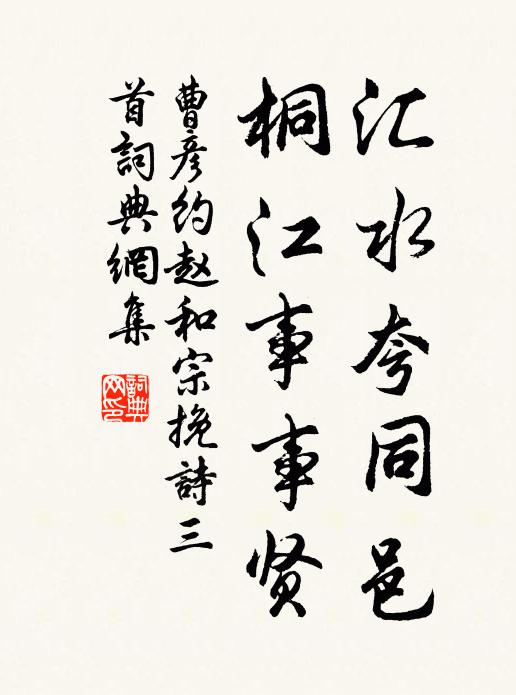 汇水夸同邑
桐江事事贤
曹彦约赵和宗挽詩三
首詞典網集
詞典
网印